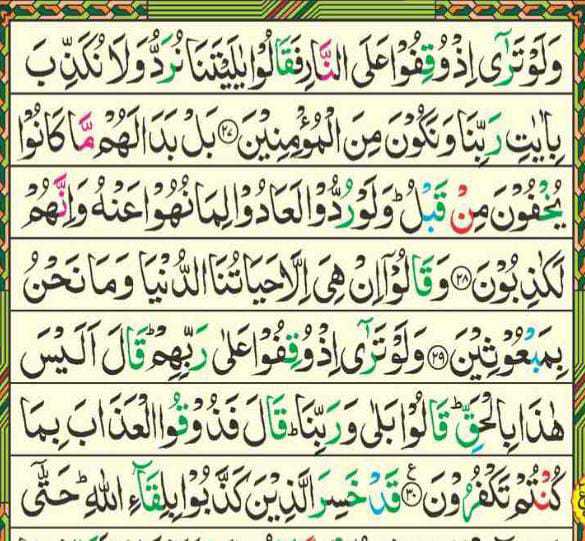 وَلَوْ تَرٰٓى اِذْ وُقِفُوْا عَلَى النَّارِ فَقَالُوْا يٰلَيْتَنَا نُرَدُّ وَلَا نُكَذِّبَ
بِاٰيٰتِ رَبِّنَا وَنَكُوْنَ مِنَ الْمُؤْمِنِيْنَ ﴿۲۷﴾ بَلْ بَدَا لَهُمْ مَّا كَانُوْا
يُخْفُوْنَ مِنْ قَبْلُ ؕ وَلَوْ رُدُّوْا لَعَادُوْا لِمَا نُهُوْا عَنْهُ وَاِنَّهُمْ
لَكٰذِبُوْنَ ﴿۲۸﴾ وَقَالُوْٓا اِنْ هِىَ اِلَّا حَيَاتُنَا الدُّنْيَا وَمَا نَحْنُ
بِمَبْعُوْثِيْنَ ﴿۲۹﴾ وَلَوْ تَرٰٓى اِذْ وُقِفُوْا عَلٰى رَبِّهِمْ ؕ قَالَ اَلَيْسَ
هٰذَا بِالْحَقِّ ؕ قَالُوْا بَلٰى وَرَبِّنَا ؕ قَالَ فَذُوْقُوا الْعَذَابَ بِمَا
كُنْتُمْ تَكْفُرُوْنَ ﴿۳۰﴾ قَدْ خَسِرَ الَّذِيْنَ كَذَّبُوْا بِلِقَآءِ اللّٰهِ ؕ حَتّٰٓى